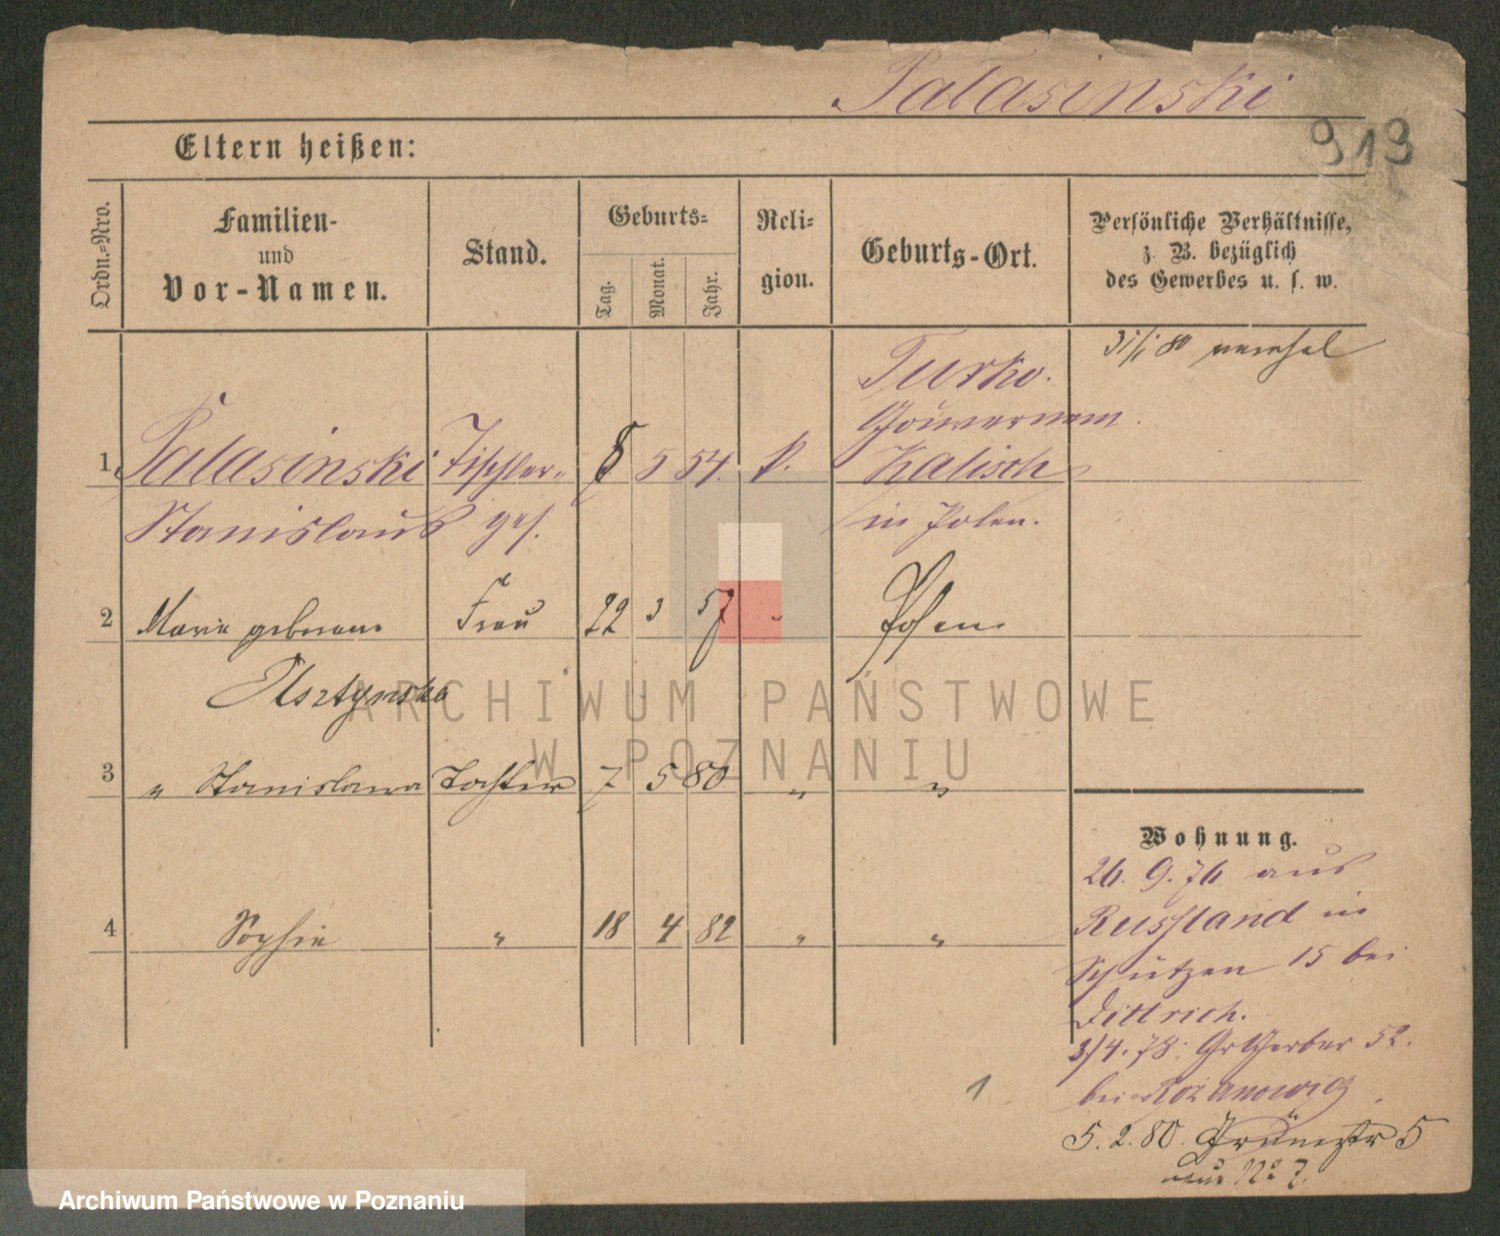 Palasinski
919
Eltern heißen:
Ordn.-Nro.
Familien-
und
Vor-Namen.
Stand.
Geburts-
Tag.
Monat.
Jahr.
Reli-
gion.
Geburts-Ort.
Persönliche Verhältnisse,
z. B. bezüglich
des Gewerbes u. s. w.
31/1 80
Turko.
Gouvernem.
1 Palasinski Tischler- 8 5 54. k. Kalisch
Stanislaus ges. in Polen.
2 Marie geborene Frau 22 3 57 " Posen
Olsztynska
3 " Stanislawa Tochter 7 5 80 " "
Wohnung.
26. 9. 76 aus
4 Sophie " 18 4 82 " "
Russland in
Schützen 15 bei
Dittrich.
3/4. 78. Gr Gerber 52.
bei
1
5. 2. 80. Grünestr 5
neue No 7.
ARCHIWUM PAŃSTWOWE
W POZNANIU
Archiwum Państwowe w Poznaniu